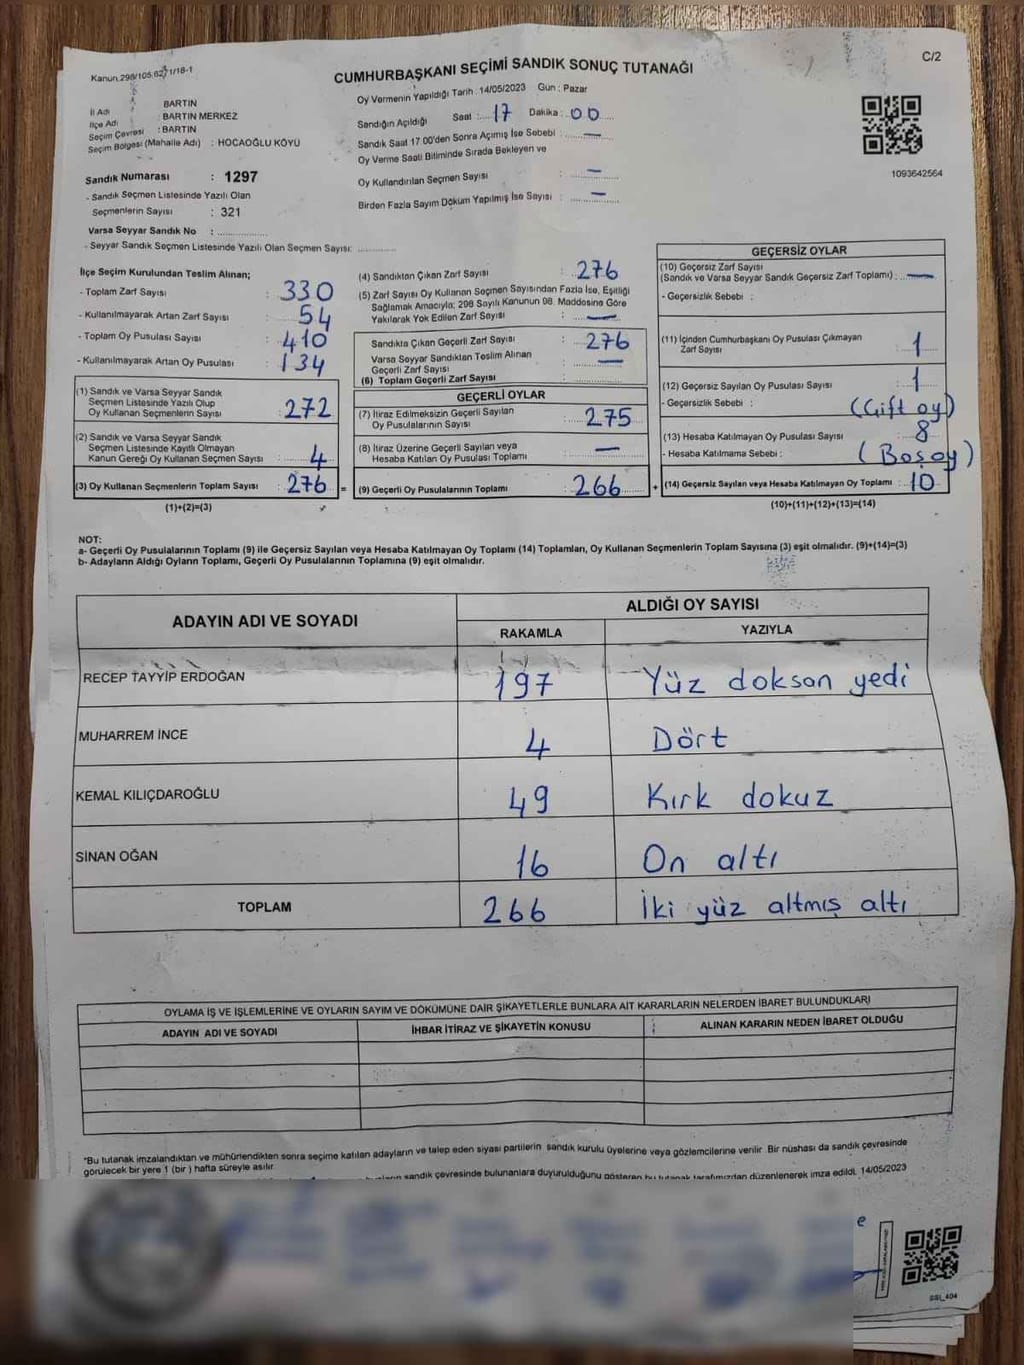 Kanun.298/105.62/1/18-1
C/2
CUMHURBAŞKANI SEÇİMİ SANDIK SONUÇ TUTANAĞI
İl Adı BARTIN
İlçe Adı : BARTIN MERKEZ
Seçim Çevresi : BARTIN
Seçim Bölgesi (Mahalle Adı) : HOCAOĞLU KÖYÜ
Sandık Numarası : 1297
- Sandık Seçmen Listesinde Yazılı Olan
Seçmenlerin Sayısı : 321
Varsa Seyyar Sandık No :
- Seyyar Sandık Seçmen Listesinde Yazılı Olan Seçmen Sayısı:
Oy Vermenin Yapıldığı Tarih : 14/05/2023 Gün : Pazar
Sandığın Açıldığı Saat : 17 Dakika : 00
Sandık Saat 17.00'den Sonra Açımış İse Sebebi : —
Oy Verme Saati Bitiminde Sırada Bekleyen ve
Oy Kullandırılan Seçmen Sayısı : —
Birden Fazla Sayım Döküm Yapılmış İse Sayısı : —
1093642564
İlçe Seçim Kurulundan Teslim Alınan;
- Toplam Zarf Sayısı : 330
- Kullanılmayarak Artan Zarf Sayısı : 54
- Toplam Oy Pusulası Sayısı : 410
- Kullanılmayarak Artan Oy Pusulası : 134
(1) Sandık ve Varsa Seyyar Sandık
Seçmen Listesinde Yazılı Olup
Oy Kullanan Seçmenlerin Sayısı : 272
(2) Sandık ve Varsa Seyyar Sandık
Seçmen Listesinde Kayıtlı Olmayan
Kanun Gereği Oy Kullanan Seçmen Sayısı : 4
(3) Oy Kullanan Seçmenlerin Toplam Sayısı : 276 =
(1)+(2)=(3)
(4) Sandıktan Çıkan Zarf Sayısı : 276
(5) Zarf Sayısı Oy Kullanan Seçmen Sayısından Fazla İse, Eşitliği
Sağlamak Amacıyla; 298 Sayılı Kanunun 98. Maddesine Göre
Yakılarak Yok Edilen Zarf Sayısı : —
Sandıkta Çıkan Geçerli Zarf Sayısı : 276
Varsa Seyyar Sandıktan Teslim Alınan
Geçerli Zarf Sayısı : —
(6) Toplam Geçerli Zarf Sayısı :
GEÇERLİ OYLAR
(7) İtiraz Edilmeksizin Geçerli Sayılan
Oy Pusulalarının Sayısı : 275
(8) İtiraz Üzerine Geçerli Sayılan veya
Hesaba Katılan Oy Pusulası Toplamı : —
(9) Geçerli Oy Pusulalarının Toplamı : 266 +
GEÇERSİZ OYLAR
(10) Geçersiz Zarf Sayısı
(Sandık ve Varsa Seyyar Sandık Geçersiz Zarf Toplamı) : —
- Geçersizlik Sebebi :
(11) İçinden Cumhurbaşkanı Oy Pusulası Çıkmayan
Zarf Sayısı : 1
(12) Geçersiz Sayılan Oy Pusulası Sayısı : 1
- Geçersizlik Sebebi : (Çift oy)
(13) Hesaba Katılmayan Oy Pusulası Sayısı : 8
- Hesaba Katılmama Sebebi : (Boş oy)
(14) Geçersiz Sayılan veya Hesaba Katılmayan Oy Toplamı : 10
(10)+(11)+(12)+(13)=(14)
NOT:
a- Geçerli Oy Pusulalarının Toplamı (9) ile Geçersiz Sayılan veya Hesaba Katılmayan Oy Toplamı (14) Toplamları, Oy Kullanan Seçmenlerin Toplam Sayısına (3) eşit olmalıdır. (9)+(14)=(3)
b- Adayların Aldığı Oyların Toplamı, Geçerli Oy Pusulalarının Toplamına (9) eşit olmalıdır.
ADAYIN ADI VE SOYADI ALDIĞI OY SAYISI
RAKAMLA YAZIYLA
RECEP TAYYİP ERDOĞAN 197 Yüz doksan yedi
MUHARREM İNCE 4 Dört
KEMAL KILIÇDAROĞLU 49 Kırk dokuz
SİNAN OĞAN 16 On altı
TOPLAM 266 İki yüz altmış altı
OYLAMA İŞ VE İŞLEMLERİNE VE OYLARIN SAYIM VE DÖKÜMÜNE DAİR ŞİKAYETLERLE BUNLARA AİT KARARLARIN NELERDEN İBARET BULUNDUKLARI
ADAYIN ADI VE SOYADI İHBAR İTİRAZ VE ŞİKAYETİN KONUSU ALINAN KARARIN NEDEN İBARET OLDUĞU
*Bu tutanak imzalandıktan ve mühürlendikten sonra seçime katılan adayların ve talep eden siyasi partilerin sandık kurulu üyelerine veya gözlemcilerine verilir. Bir nüshası da sandık çevresinde
görülecek bir yere 1 (bir) hafta süreyle asılır.
sandık çevresinde bulunanlara duyurulduğunu gösteren bu tutanak tarafımızdan düzenlenerek imza edildi. 14/05/2023
e